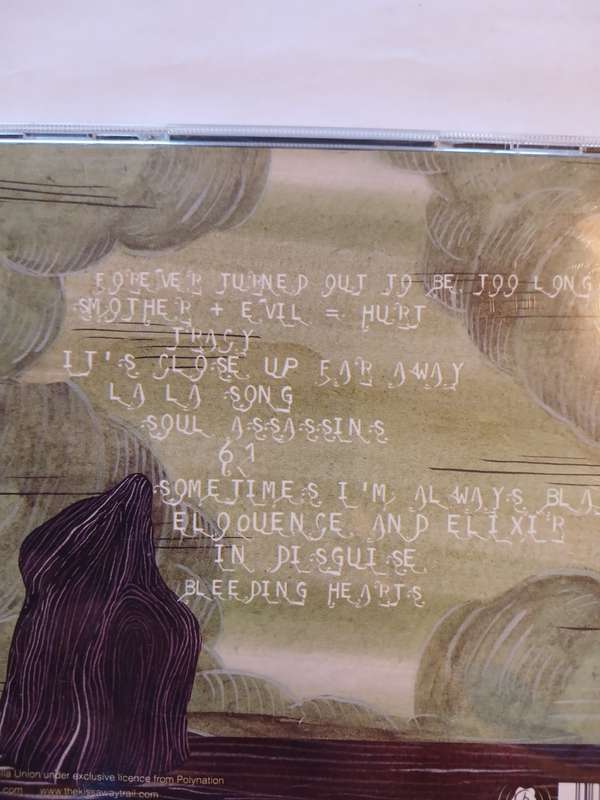 FOREVER TURNED OUT TO BE TOO LONG
SMOTHER + EVIL = HURT
TRACY
IT'S CLOSE UP FAR AWAY
LA LA SONG
SOUL ASSASSINS
61
SOMETIMES I'M ALWAYS BLA
ELOQUENCE AND ELIXIR
IN DISGUISE
BLEEDING HEARTS
lla Union under exclusive licence from Polynation
.com www.thekissawaytrail.com